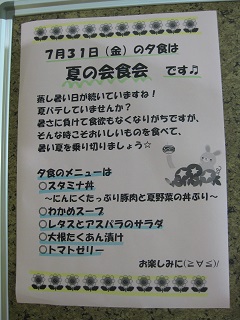 7月31日(金)の夕食は
夏の会食会 です♫
蒸し暑い日が続いていますね!
夏バテしていませんか?
暑さに負けて食欲もなくなりがちですが、
そんな時こそおいしいものを食べて、
暑い夏を乗り切りましょう☆
夕食のメニューは
○スタミナ丼
~にんにくたっぷり豚肉と夏野菜の丼ぶり~
○わかめスープ
○レタスとアスパラのサラダ
○大根たくあん漬け
○トマトゼリー
お楽しみに(≧∀≦)/